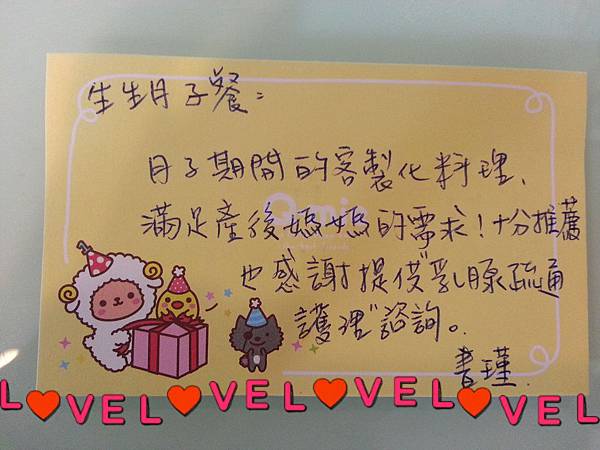 生生月子餐:
月子期間的客製化料理、
滿足產後媽媽的需求!十分推薦
也感謝提供"乳腺疏通
護理"諮詢。
書瑾.
L♥VEL♥VEL♥VEL♥VEL